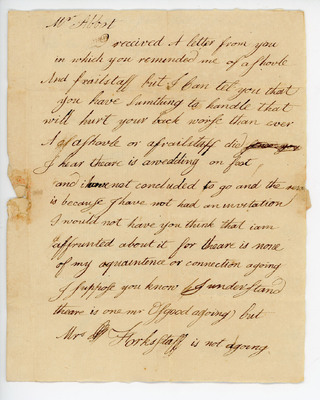 Mr Abbot
I received A letter from you
in which you reminded me of a shovle
And frailstaff but I Can tel you that
you have Sumthing to handle that
will hurt your back worse than ever
A of a shovle or a frailstaff did
I hear theare is a wedding on foot,
and i have not concluded to go and the
is because I have not had an invitation
I would not have you think that i am
affrunted about it for theare is none
of my aquaintence or connection agoing
I suppose you know (I understand
theare is one mr Osgood agoing) but
Mrs Forkstaff is not agoing